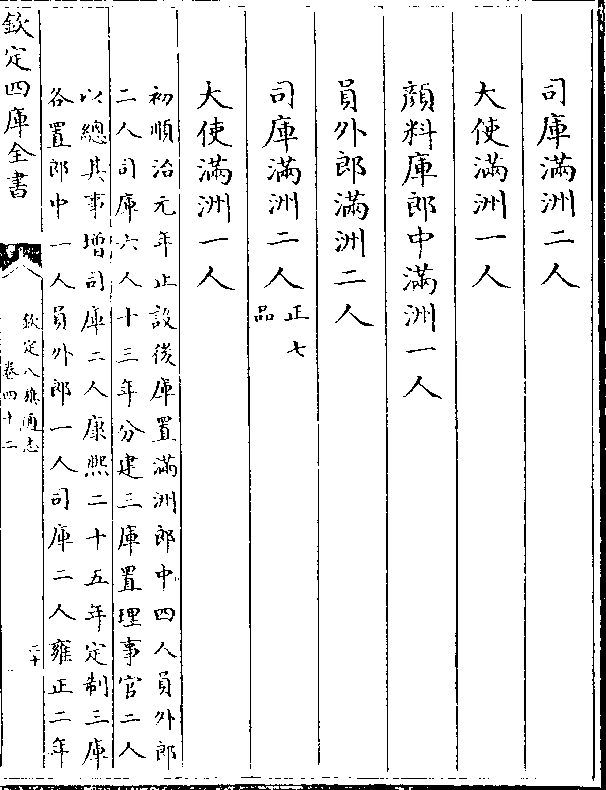 司庫滿洲二人
大使滿洲一人
顔料庫郎中滿洲一人
員外郎滿洲二人
司庫滿洲二人正七品
大使滿洲一人
初順治元年止設後庫置滿洲郎中四人員外郎
二人司庫六人十三年分建三庫置理事官二人
以總其事增司庫二人康熙二十五年定制三庫
各置郎中一人員外郎一人司庫二人雍正二年
欽定四庫全書
欽定八旗通志
卷四十二
二十